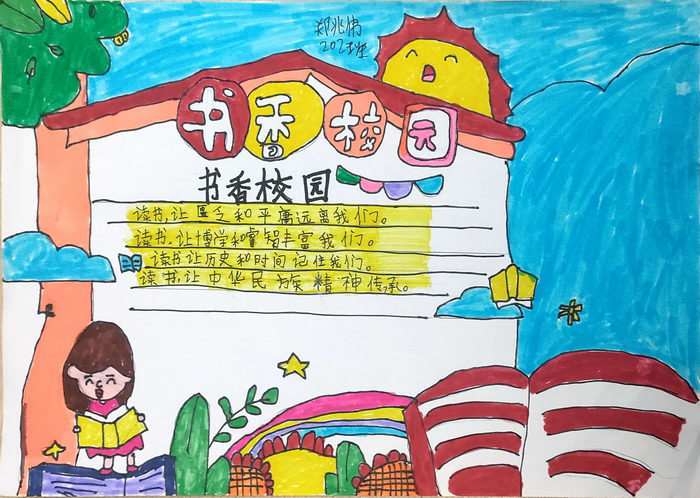 郑兆伟
202班
书香校园
书香校园
读书,让匮乏和平庸远离我们。
读书,让博学和睿智丰富我们。
读书让历史和时间记住我们。
读书,让中华民族精神传承。